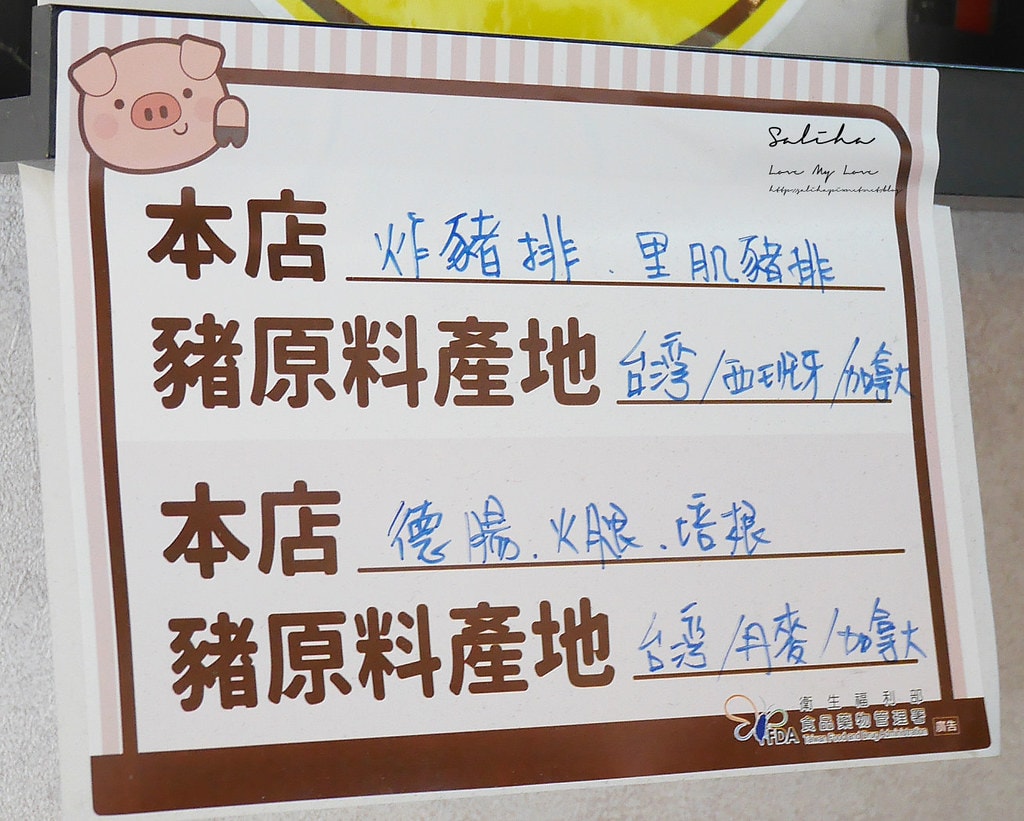 Saliha
Love My Love
本店 炸豬排、里肌豬排
豬原料產地 台灣/西班牙/加拿大
本店 德腸、火腿、培根
豬原料產地 台灣/丹麥/加拿大
衛生福利部
TFDA 食品藥物管理署 廣告
Taiwan Food and Drug Administration